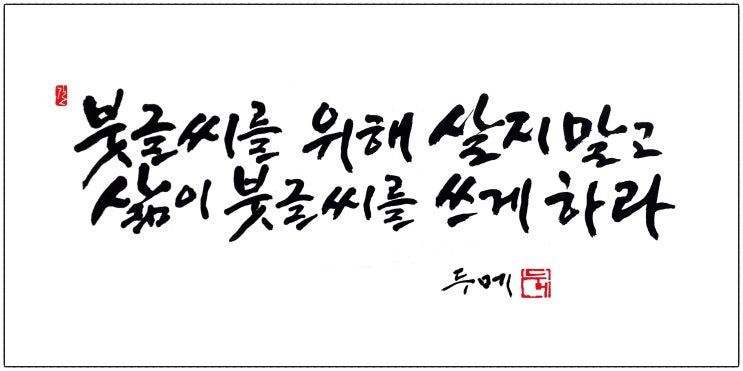 붓글씨를 위해 살지말고
삶이 붓글씨를 쓰게 하라
두메
두메